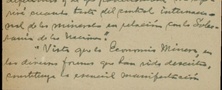 rió cuando trate del control internacio-
nal de los minerales en relación con la Sobe-
ranía de las Naciones"
"Visto que la Economía Minera en
las diversas formas que han sido descritas,
constituye la esencial manifestación